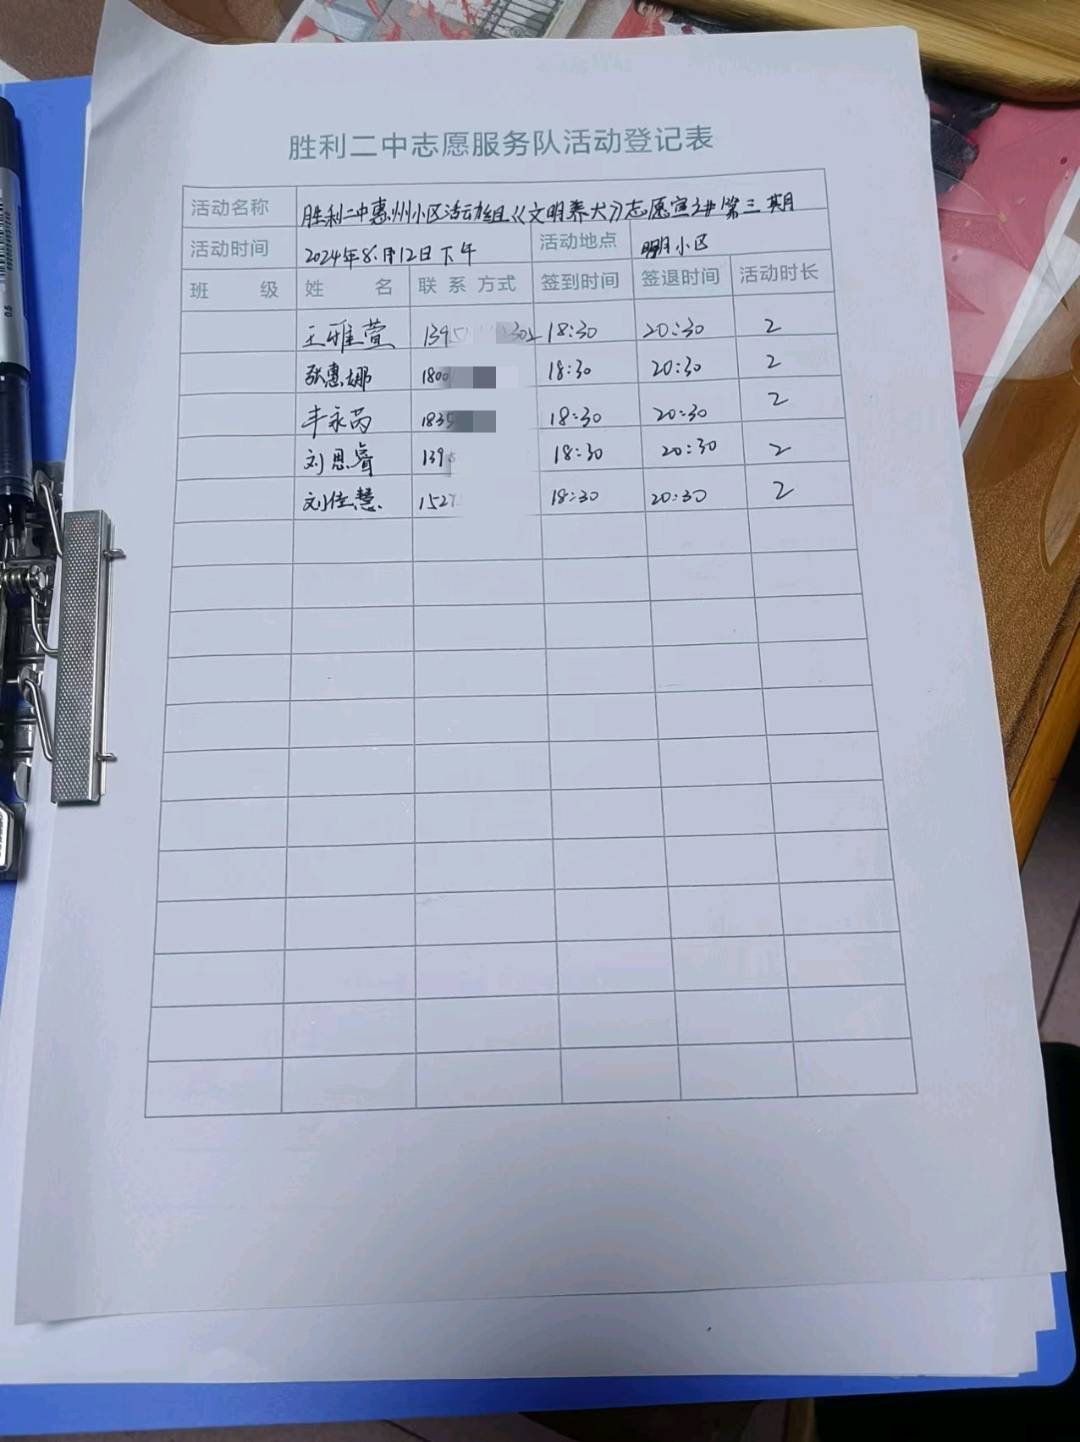 胜利二中志愿服务队活动登记表
活动名称 胜利二中惠州小区活动组《文明养犬》志愿宣讲第三期
活动时间 2024年8月12日下午 活动地点 明月小区
班 级 姓 名 联 系 方式 签到时间 签退时间 活动时长
王雅萱 18:30 20:30 2
张惠娜 1800 18:30 20:30 2
丰永芮 1835 18:30 20:30 2
刘恩睿 139 18:30 20:30 2
刘佳慧 1527 18:30 20:30 2
0.5